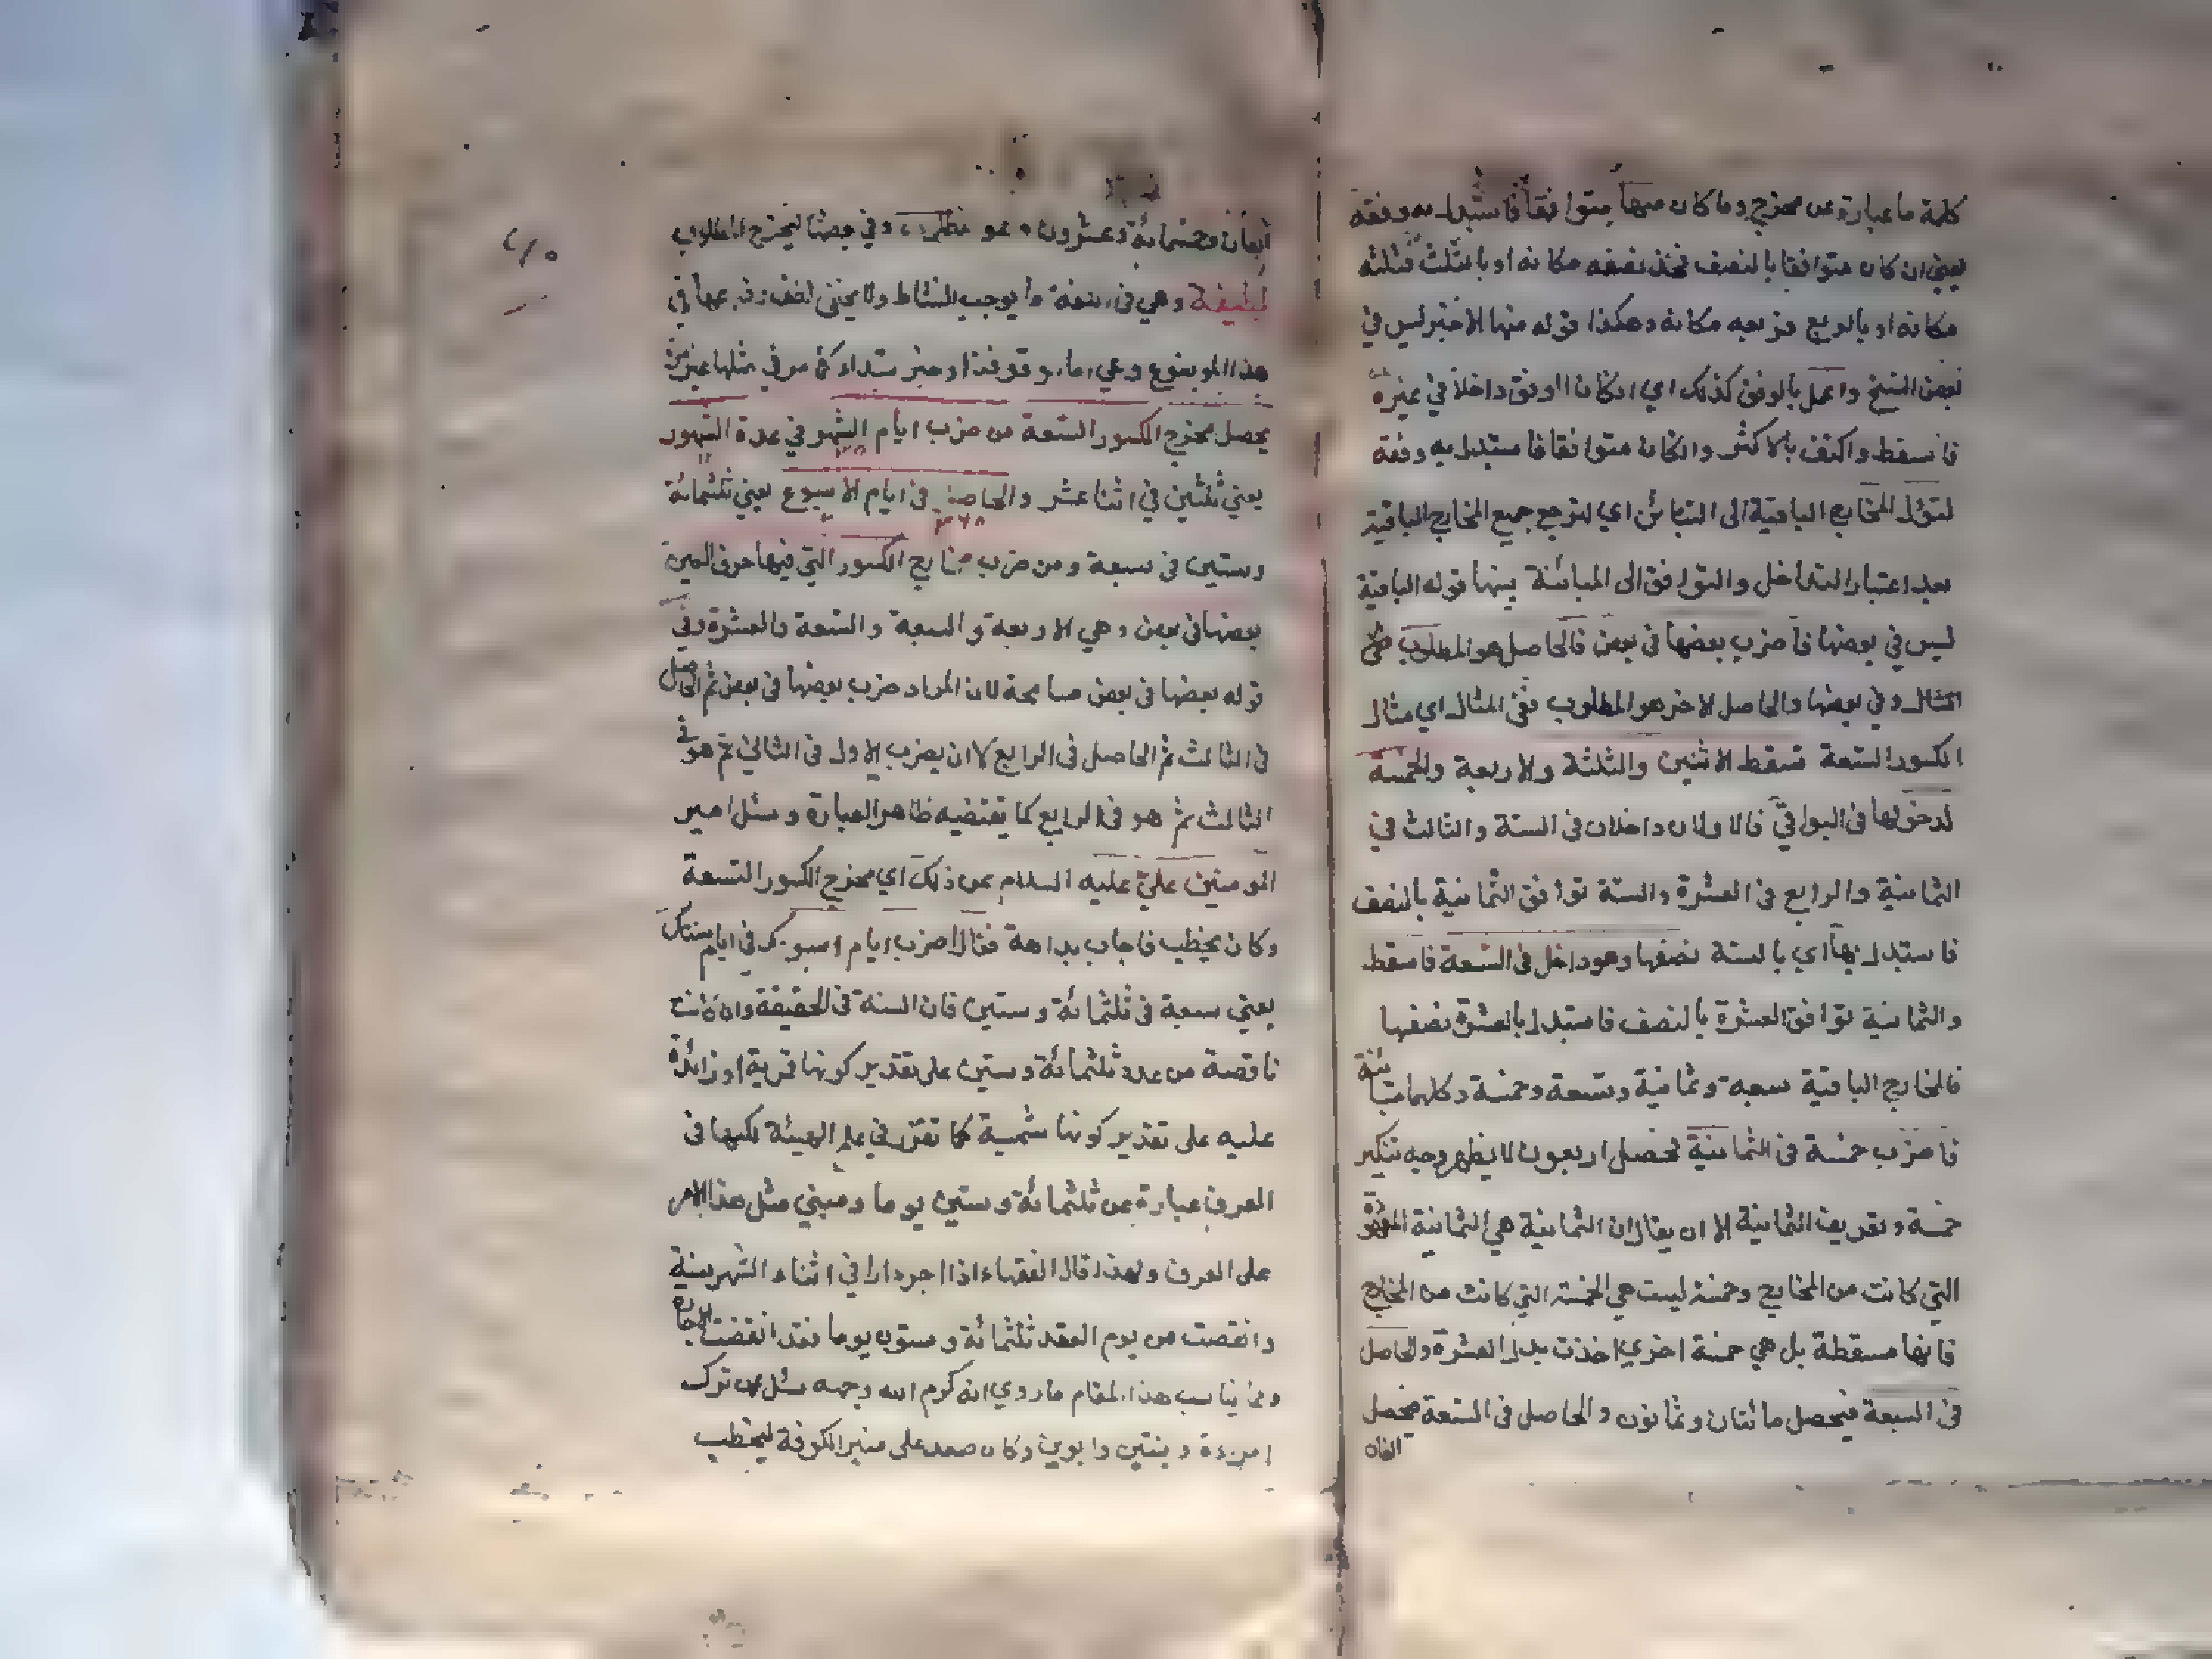 كلمة ما عبارة عن مخرج وما كان منها متوافقا فاستبدل به وفقه
يعني ان كان متوافقا بالنصف فخذ نصفه مكانه او بالثلث فثلثه
مكانه او بالربع فربعه مكانه وهكذا قوله منها الاخير ليس في
بعض النسخ واعمل بالوفق كذلك اي ان كان الوفق داخلا في غيره
فاسقط واكتف بالاكثر وان كان متوافقا فاستبدل به وفقه
لتؤل المخارج الباقية الى التباين اي لترجع جميع المخارج الباقية
بعد اعتبار التداخل والتوافق الى المباينة بينها قوله الباقية
ليس في بعضها فاضرب بعضها في بعض فالحاصل هو المطلوب
المثال وفي بعضها والحاصل الاخر هو المطلوب ففي المثال اي مثال
الكسور التسعة تسقط الاثنين والثلثة والاربعة والخمسة
لدخولها في البواقي فالاولان داخلان في الستة والثالث في
الثمانية والرابع في العشرة والستة توافق الثمانية بالنصف
فاستبدل بها اي بالستة نصفها وهو داخل في التسعة فاسقط
والثمانية توافق العشرة بالنصف فاستبدل بالعشرة نصفها
فالمخارج الباقية سبعة وثمانية وتسعة وخمسة وكلها متباينة
فاضرب خمسة في الثمانية تحصل اربعون لا يظهر وجه تنكير
خمسة وتعريف الثمانية الا ان يقال ان الثمانية هي الثمانية
التي كانت من المخارج وخمسة ليست هي الخمسة التي كانت من المخارج
فانها مسقطة بل هي خمسة اخرى اخذت بدل العشرة والحاصل
في السبعة فيحصل مائتان وثمانون والحاصل في التسعة فيحصل
الفان
الفان وخمسمائة وعشرون وهو المطلوب وفي بعضها ليخرج المطلوب
لطيفة وهي في اللغة ما يوجب النشاط ولا يخفى لطف في
هذا الموضوع وهي اما موقوفة او خبر مبتداء كما مر في مثلها غير مرة
يحصل مخرج الكسور التسعة من ضرب ايام الشهر في عدة الشهور
يعني ثلثين في اثنا عشر والحاصل في ايام الاسبوع يعني ثلثمائة
٣٦٠
وستين في سبعة ومن ضرب مخارج الكسور التي فيها حرف العين
بعضها في بعض وهي الاربعة والسبعة والتسعة والعشرة وفي
قوله بعضها في بعض مسامحة لان المراد ضرب بعضها في بعض ثم الحاصل
في الثالث ثم الحاصل في الرابع لا ان يضرب الاول في الثاني ثم هو في
الثالث ثم هو في الرابع كما يقتضيه ظاهر العبارة وسئل امير
المومنين علي عليه السلام عن ذلك اي مخرج الكسور التسعة
وكان يخطب فاجاب بداهة فقال اضرب ايام اسبوعك في ايام سنتك
يعني سبعة في ثلثمائة وستين فان السنة في الحقيقة وان كانت
ناقصة من عدد ثلثمائة وستين على تقدير كونها قمرية او زائدة
عليه على تقدير كونها شمسية كما تقرر في علم الهيئة لكنها في
العرف عبارة عن ثلثمائة وستين يوما ومبنى مثل هذا الامر
على العرف ولهذا قال الفقهاء اذا اجر دارا في اثناء الشهر سنة
وانقضت من يوم العقد ثلثمائة وستون يوما فقد انقضت الاجارة
ومما يناسب هذا المقام ما روي انه كرم الله وجهه سئل عمن ترك
امرءة وبنتين وابوين وكان صعد على منبر الكوفة ليخطب